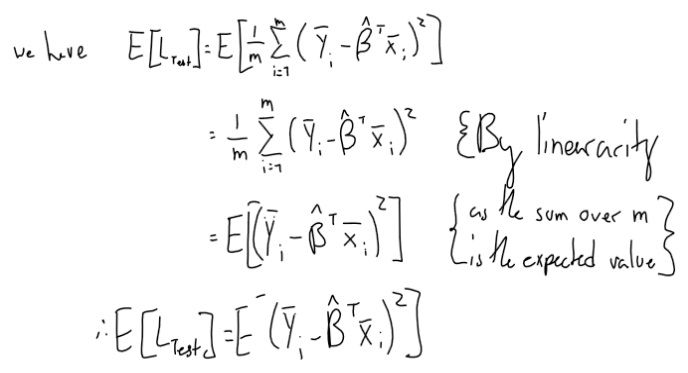 we have E[L_Test] = E[1/m Σ_{i=1}^{m} (Ȳ_i - β̂^T x̄_i)^2]
= 1/m Σ_{i=1}^{m} (Ȳ_i - β̂^T x̄_i)^2 {By linearacity
= E[(Ȳ_i - β̂^T x̄_i)^2] {as the sum over m
is the expected value}
∴ E[L_Test] = E[(Ȳ_i - β̂^T x̄_i)^2]